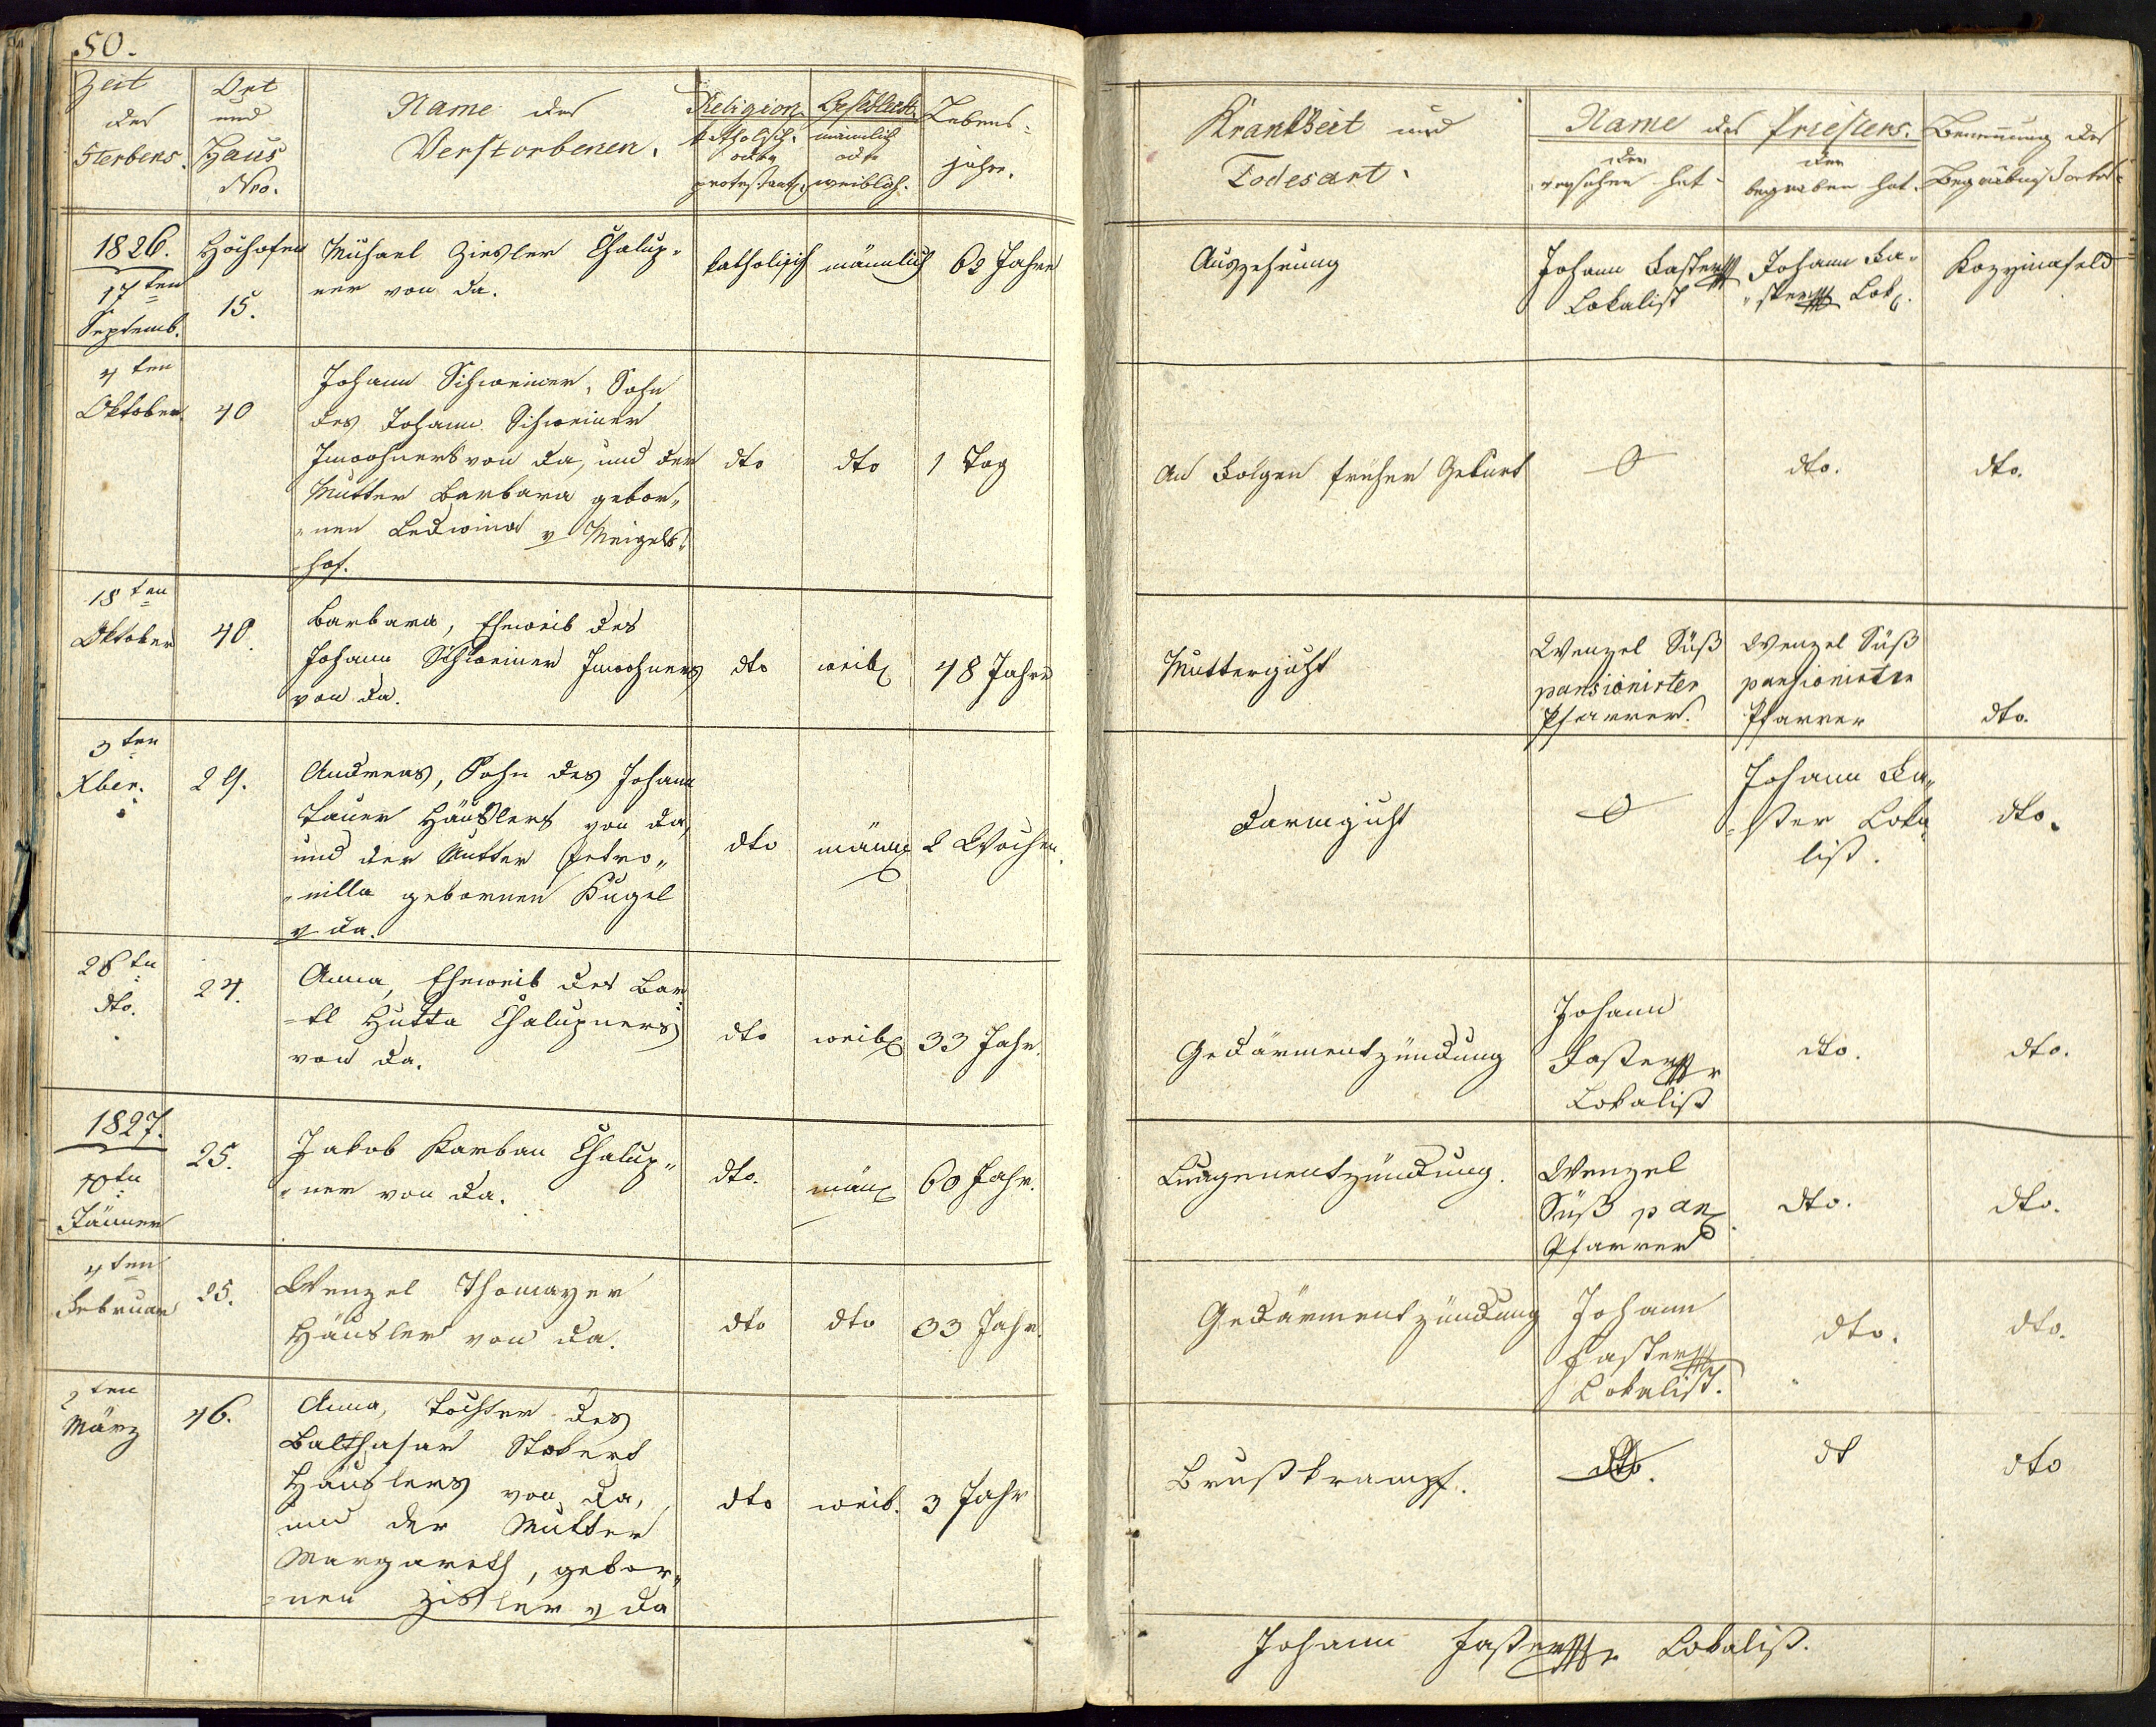 50.
Zeit
des
Sterbens.
Ort
und
Haus
Nro.
Name des
Verstorbenen.
Religion.
katholisch.
oder
protestant.
Geschlecht.
männlich
oder
weiblich.
Lebens-
jahre.
Krankheit und
Todesart.
Name des Priesters.
der
versehen hat
der
begraben hat.
Benennung des
Begräbnißortes
1826.
17ten
Septemb.
Hochofen
15.
Michael Ziesler Chalup„
ner von da.
katholisch
männlich
62 Jahre
Auszehrung
Johann Faster
Lokalist
Johann Fa„
„ster Lok.
4ten
Oktober
40
Johann Schweiner, Sohn
des Johann Schweiner
Inwohners von da, und der
Mutter Barbara gebor„
„nen Ledwina v Meigels„
hof.
dto
dto
1 Tag
An Folgen früher Geburt
dto.
dto.
18ten
Oktober
40.
Barbara, Eheweib des
Johann Schweiner Inwohners
von da.
dto
weib
48 Jahre
Muttergicht
Wenzel Süß
pansionirter
Pfarrer.
Wenzel Süß
pansionirter
Pfarrer
dto.
3ten
Xber.
29.
Andreas, Sohn des Johann
Tauer Häuslers von da,
und der Mutter Petro„
„nilla gebornen Kugel
v da.
dto
männ
2 Wochen.
Darmgicht
Johann Fa„
„ster Loka„
list.
dto.
28tn
dto.
24.
Anna, Eheweib des Bar
„tl Hutta Chalupners
von da.
dto
weib
33 Jahr.
Gedärmentzündung
Johann
Faster
Lokalist
dto.
dto.
1827.
10tn
Jänner
25.
Jakob Karban Chalup„
„ner von da.
dto.
män
60 Jahr.
Lungenentzündung.
Wenzel
Süß pan
Pfarrer
dto.
dto.
4ten
Februar
25.
Wenzel Thomayer
Häusler von da.
dto
dto
33 Jahr.
Gedärmentzündung
Johann
Faster
Lokalist.
dto.
dto.
2ten
März
46.
Anna, Tochter des
Balthasar Stokert
Häuslers von da,
und der Mutter
Margareth, gebor„
„nen Zißler v da
dto
weib.
3 Jahr
Brustkrampf.
dto.
dt
dto
Johann Faster Lokalist.